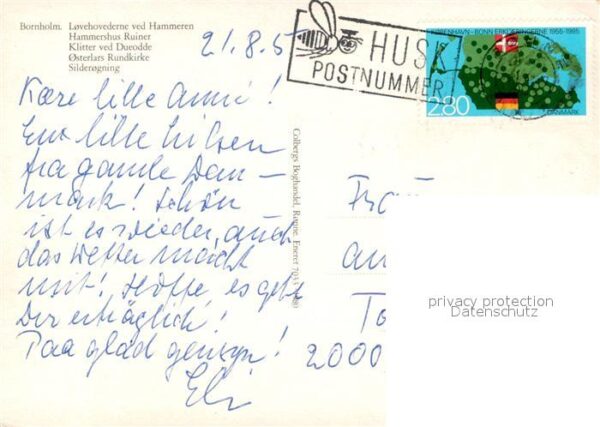 Bornholm. Løvehovederne ved Hammeren
Hammershus Ruiner
Klitter ved Dueodde
Østerlars Rundkirke
Silderøgning
21.8.5
HUSK
POSTNUMMER
KØBENHAVN-BONN ERKLÆRINGERNE 1955-1985
2.80
DANMARK
Kære lille Anni!
Een lille hilsen
fra gamle Dan-
mark! Schön
ist es wieder, auch
das Wetter macht
mit! Hoffe, es geht
Dir erträglich!
Paa glad gensyn!
Eli
Colbergs Boghandel, Rønne. Eneret
Frau
An
To
2000
privacy protection
Datenschutz